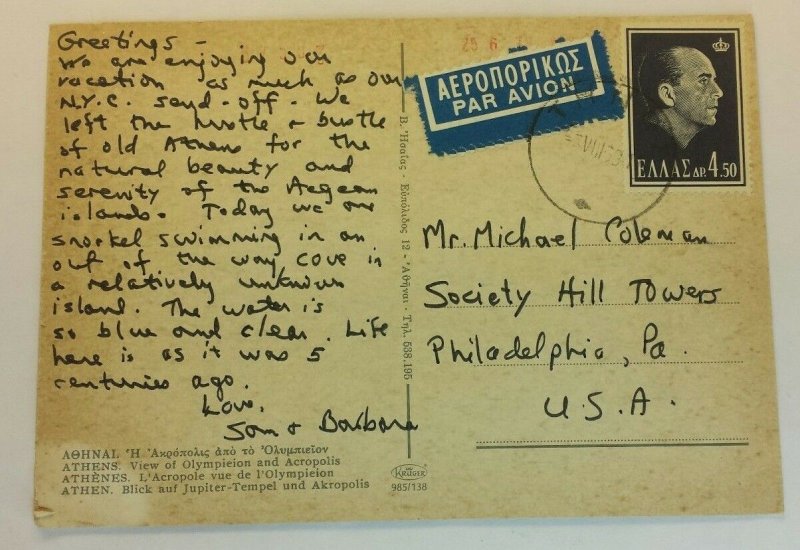 Greetings -
We are enjoying our
vacation as much as our
N.Y.C. send-off. We
left the hustle + bustle
of old Athens for the
natural beauty and
serenity of the Aegean
islands. Today we are
snorkel swimming in an
out of the way cove in
a relatively unknown
island. The water is
so blue and clear. Life
here is as it was 5
centuries ago.
Love,
Sam + Barbara
ΑΘΗΝΑΙ. Ἡ Ἀκρόπολις ἀπὸ τὸ Ὀλυμπιεῖον
ATHENS. View of Olympieion and Acropolis
ATHÈNES. L'Acropole vue de l'Olympieion
ATHEN. Blick auf Jupiter-Tempel und Akropolis
KRÜGER
985/138
Β. Ἡσαΐας · Εὐπόλιδος 12 · Ἀθῆναι · Τηλ. 538.195
25 6
ΑΕΡΟΠΟΡΙΚΩΣ
PAR AVION
ΕΛΛΑΣ ΔΡ. 4.50
Mr. Michael Coleman
Society Hill Towers
Philadelphia, Pa.
U.S.A.